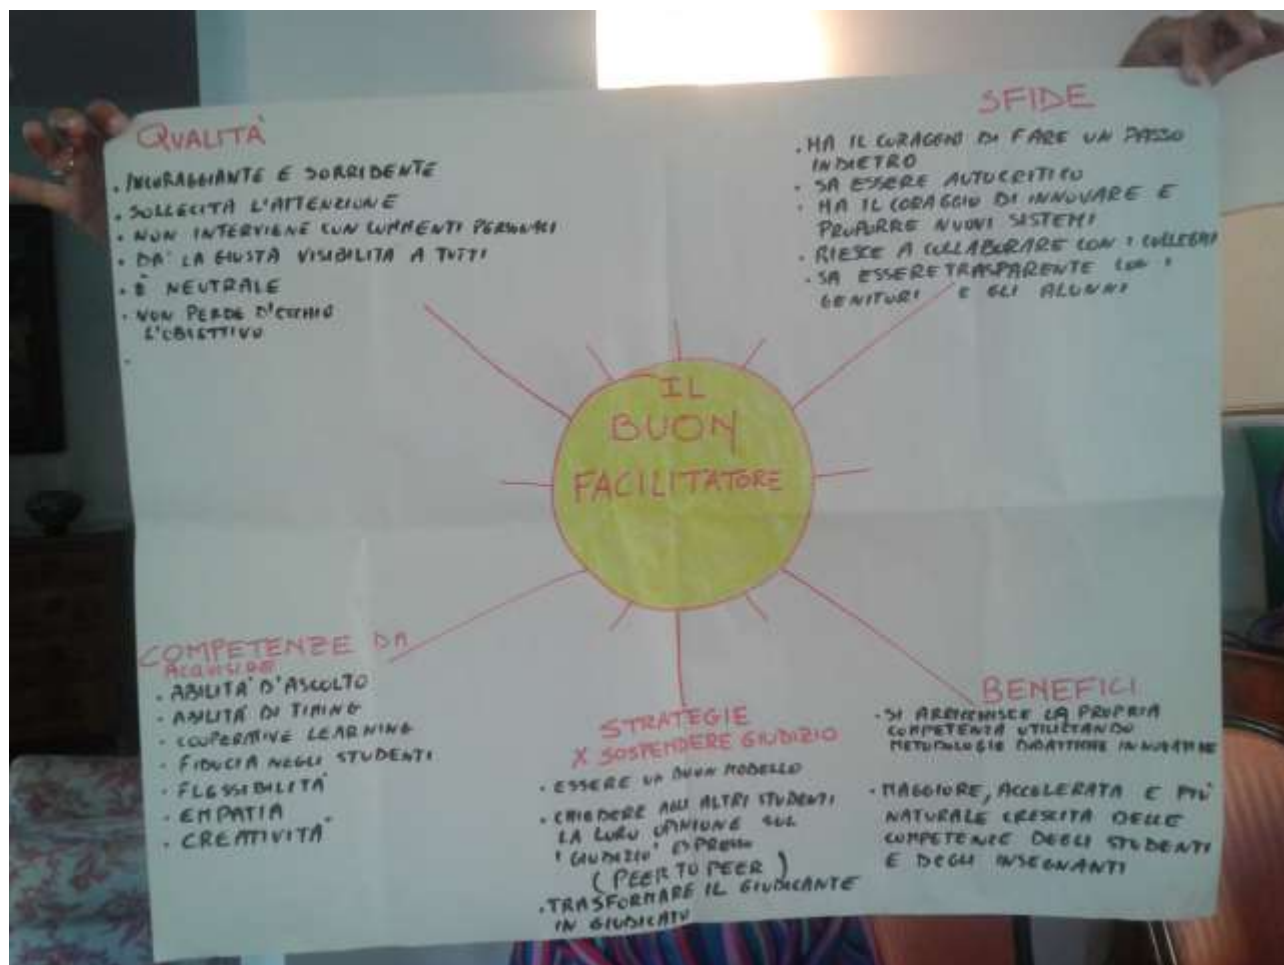 QUALITÀ
. INCORAGGIANTE E SORRIDENTE
. SOLLECITA L'ATTENZIONE
. NON INTERVIENE CON COMMENTI PERSONALI
. DA' LA GIUSTA VISIBILITÀ A TUTTI
. È NEUTRALE
. NON PERDE D'OCCHIO
L'OBIETTIVO
.
SFIDE
. HA IL CORAGGIO DI FARE UN PASSO
INDIETRO
. SA ESSERE AUTOCRITICO
. HA IL CORAGGIO DI INNOVARE E
PROPORRE NUOVI SISTEMI
. RIESCE A COLLABORARE CON I COLLEGHI
. SA ESSERE TRASPARENTE CON I
GENITORI E GLI ALUNNI
IL
BUON
FACILITATORE
COMPETENZE DA
ACQUISIRE
. ABILITA' D'ASCOLTO
. ABILITÀ DI TIMING
. COOPERATIVE LEARNING
. FIDUCIA NEGLI STUDENTI
. FLESSIBILITÀ
. EMPATIA
. CREATIVITÀ
STRATEGIE
X SOSPENDERE GIUDIZIO
. ESSERE UN BUON MODELLO
. CHIEDERE AGLI ALTRI STUDENTI
LA LORO OPINIONE SUL
"GIUDIZIO" ESPRESSO
(PEER TO PEER)
. TRASFORMARE IL GIUDICANTE
IN GIUDICATO
BENEFICI
. SI ARRICCHISCE LA PROPRIA
COMPETENZA UTILIZZANDO
METODOLOGIE DIDATTICHE INNOVATIVE
. MAGGIORE, ACCELERATA E PIÙ
NATURALE CRESCITA DELLE
COMPETENZE DEGLI STUDENTI
E DEGLI INSEGNANTI